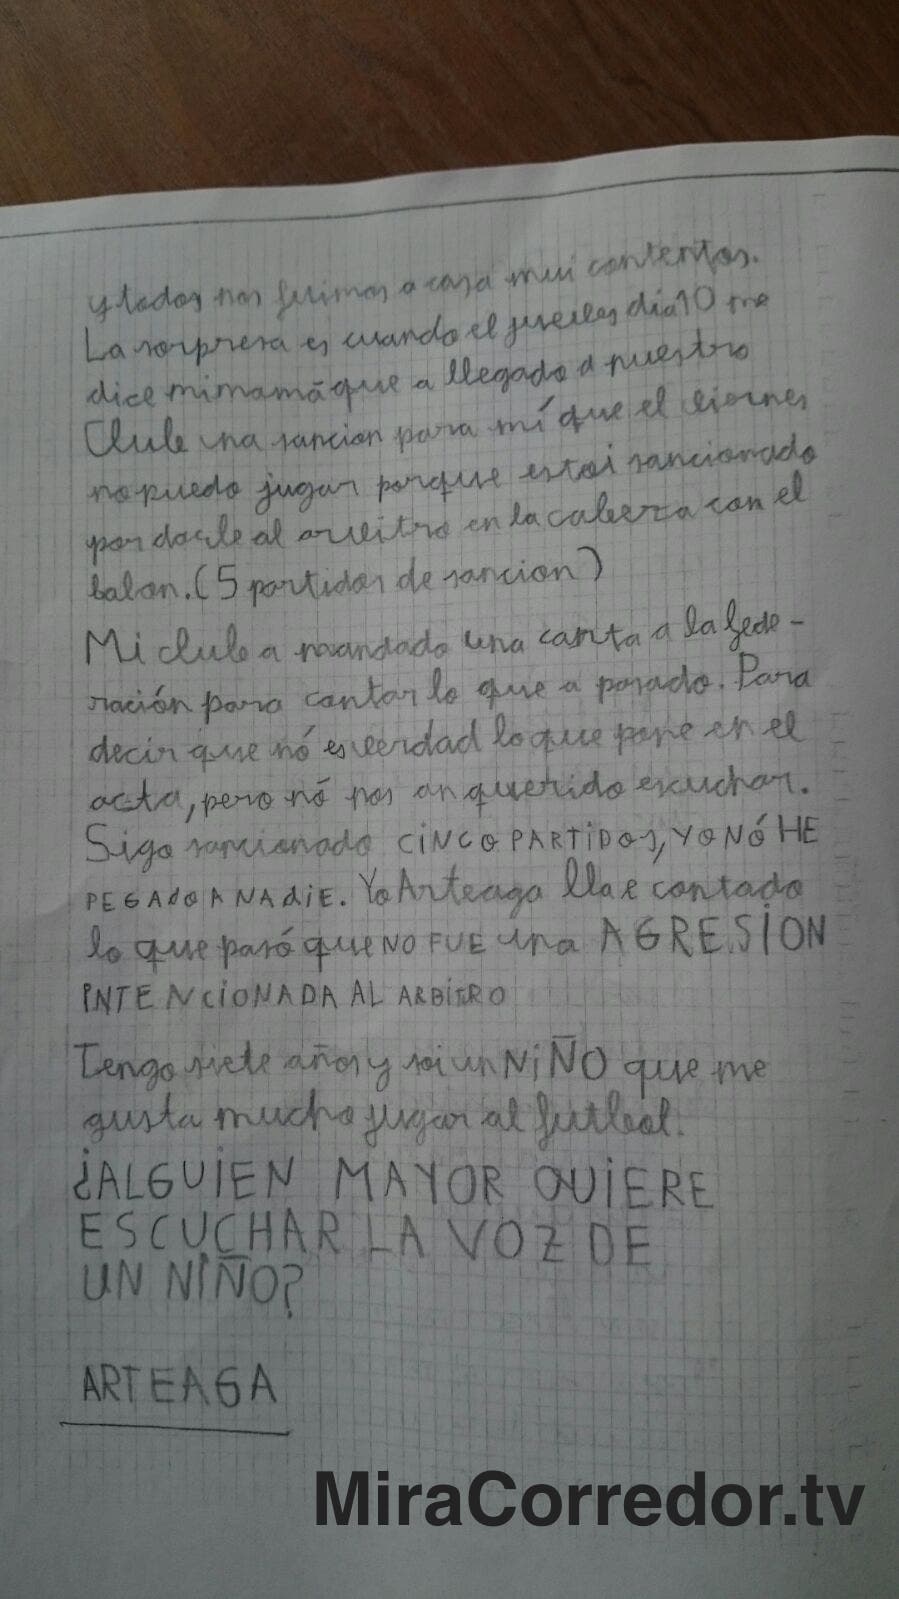 y todos nos fuimos a casa mui contentos.
La sorpresa es cuando el jueves dia 10 me
dice mi mamá que a llegado a nuestro
Club una sancion para mí que el viernes
no puedo jugar porque estoi sancionado
por darle al arvitro en la cabeza con el
balon. (5 partidos de sancion)
Mi club a mandado una carta a la fede-
ración para contar lo que a pasado. Para
decir que nó es verdad lo que pone en el
acta, pero nó nos an querido escuchar.
Sigo sancionado CINCO PARTIDOS, YO NÓ HE
PEGADO A NADIE. Yo Arteaga lla e contado
lo que pasó que NO FUE una AGRESION
INTENCIONADA AL ARBITRO
Tengo siete años y soi un NIÑO que me
gusta mucho jugar al futbol.
¿ALGUIEN MAYOR QUIERE
ESCUCHAR LA VOZ DE
UN NIÑO?
ARTEAGA
MiraCorredor.tv